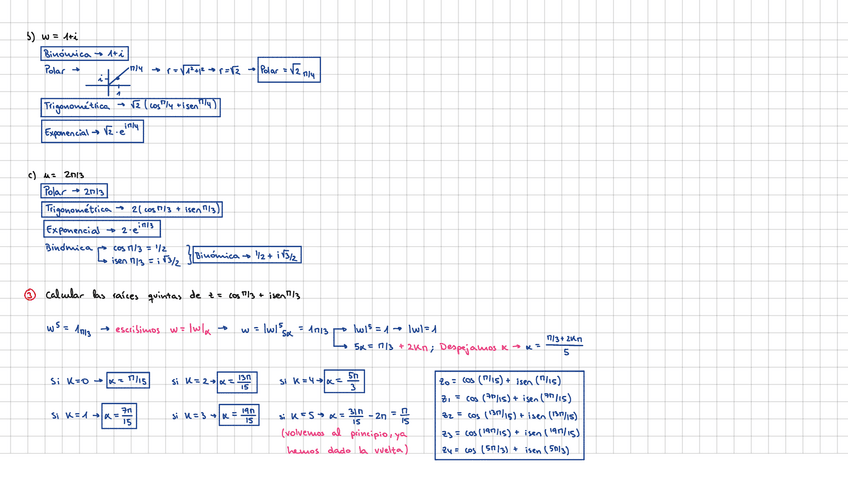 b) w = 1+i
Binómica → 1+i
Polar → i 1 π/4 → r = √1²+1² → r = √2 → Polar = √2 π/4
Trigonométrica → √2 (cos π/4 + i sen π/4)
Exponencial → √2 · e^iπ/4
c) u = 2π/3
Polar → 2π/3
Trigonométrica → 2(cos π/3 + i sen π/3)
Exponencial → 2·e^iπ/3
Binómica → cos π/3 = 1/2
→ i sen π/3 = i √3/2 } Binómica → 1/2 + i √3/2
③ Calcular las raíces quintas de z = cos π/3 + i sen π/3
w⁵ = 1π/3 → escribimos w = |w|α → w = |w|⁵5α = 1π/3 → |w|⁵ = 1 → |w| = 1
→ 5α = π/3 + 2Kπ ; Despejamos α → α = π/3 + 2Kπ / 5
Si K=0 → α = π/15 si K=2 → α = 13π/15 si K=4 → α = 5π/3
Si K=1 → α = 7π/15 si K=3 → α = 19π/15 si K=5 → α = 31π/15 - 2π = π/15
(volvemos al principio, ya
hemos dado la vuelta)
z0 = cos (π/15) + i sen (π/15)
z1 = cos (7π/15) + i sen (7π/15)
z2 = cos (13π/15) + i sen (13π/15)
z3 = cos (19π/15) + i sen (19π/15)
z4 = cos (5π/3) + i sen (5π/3)